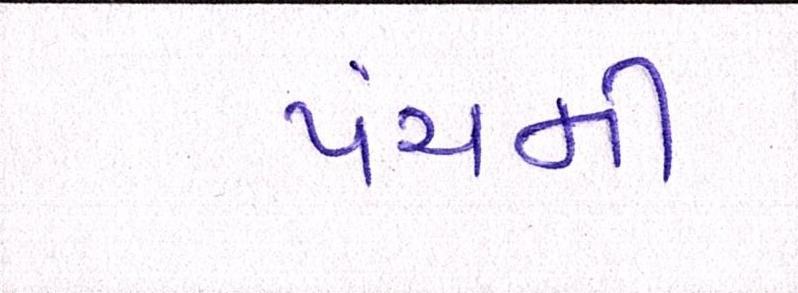 પંચમી